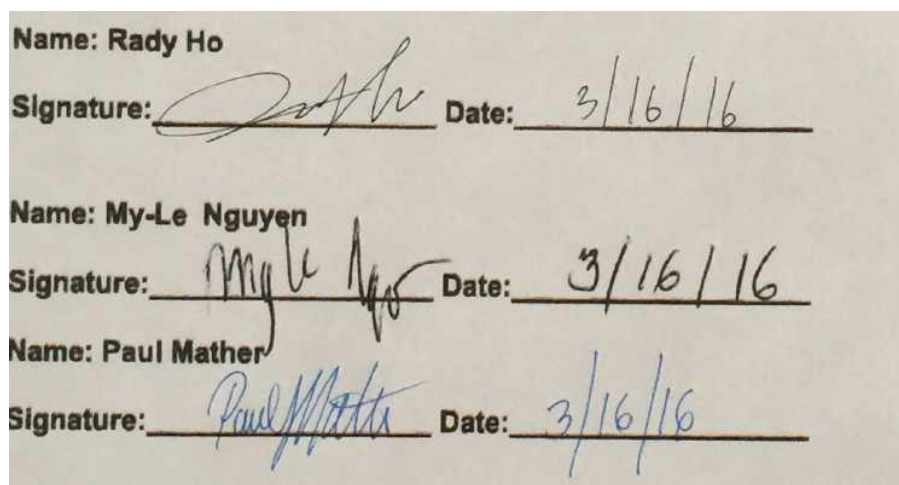 Name: Rady Ho
Signature: Date: 3/16/16
Name: My-Le Nguyen
Signature: My Le Date: 3/16/16
Name: Paul Mather
Signature: Paul Date: 3/16/16